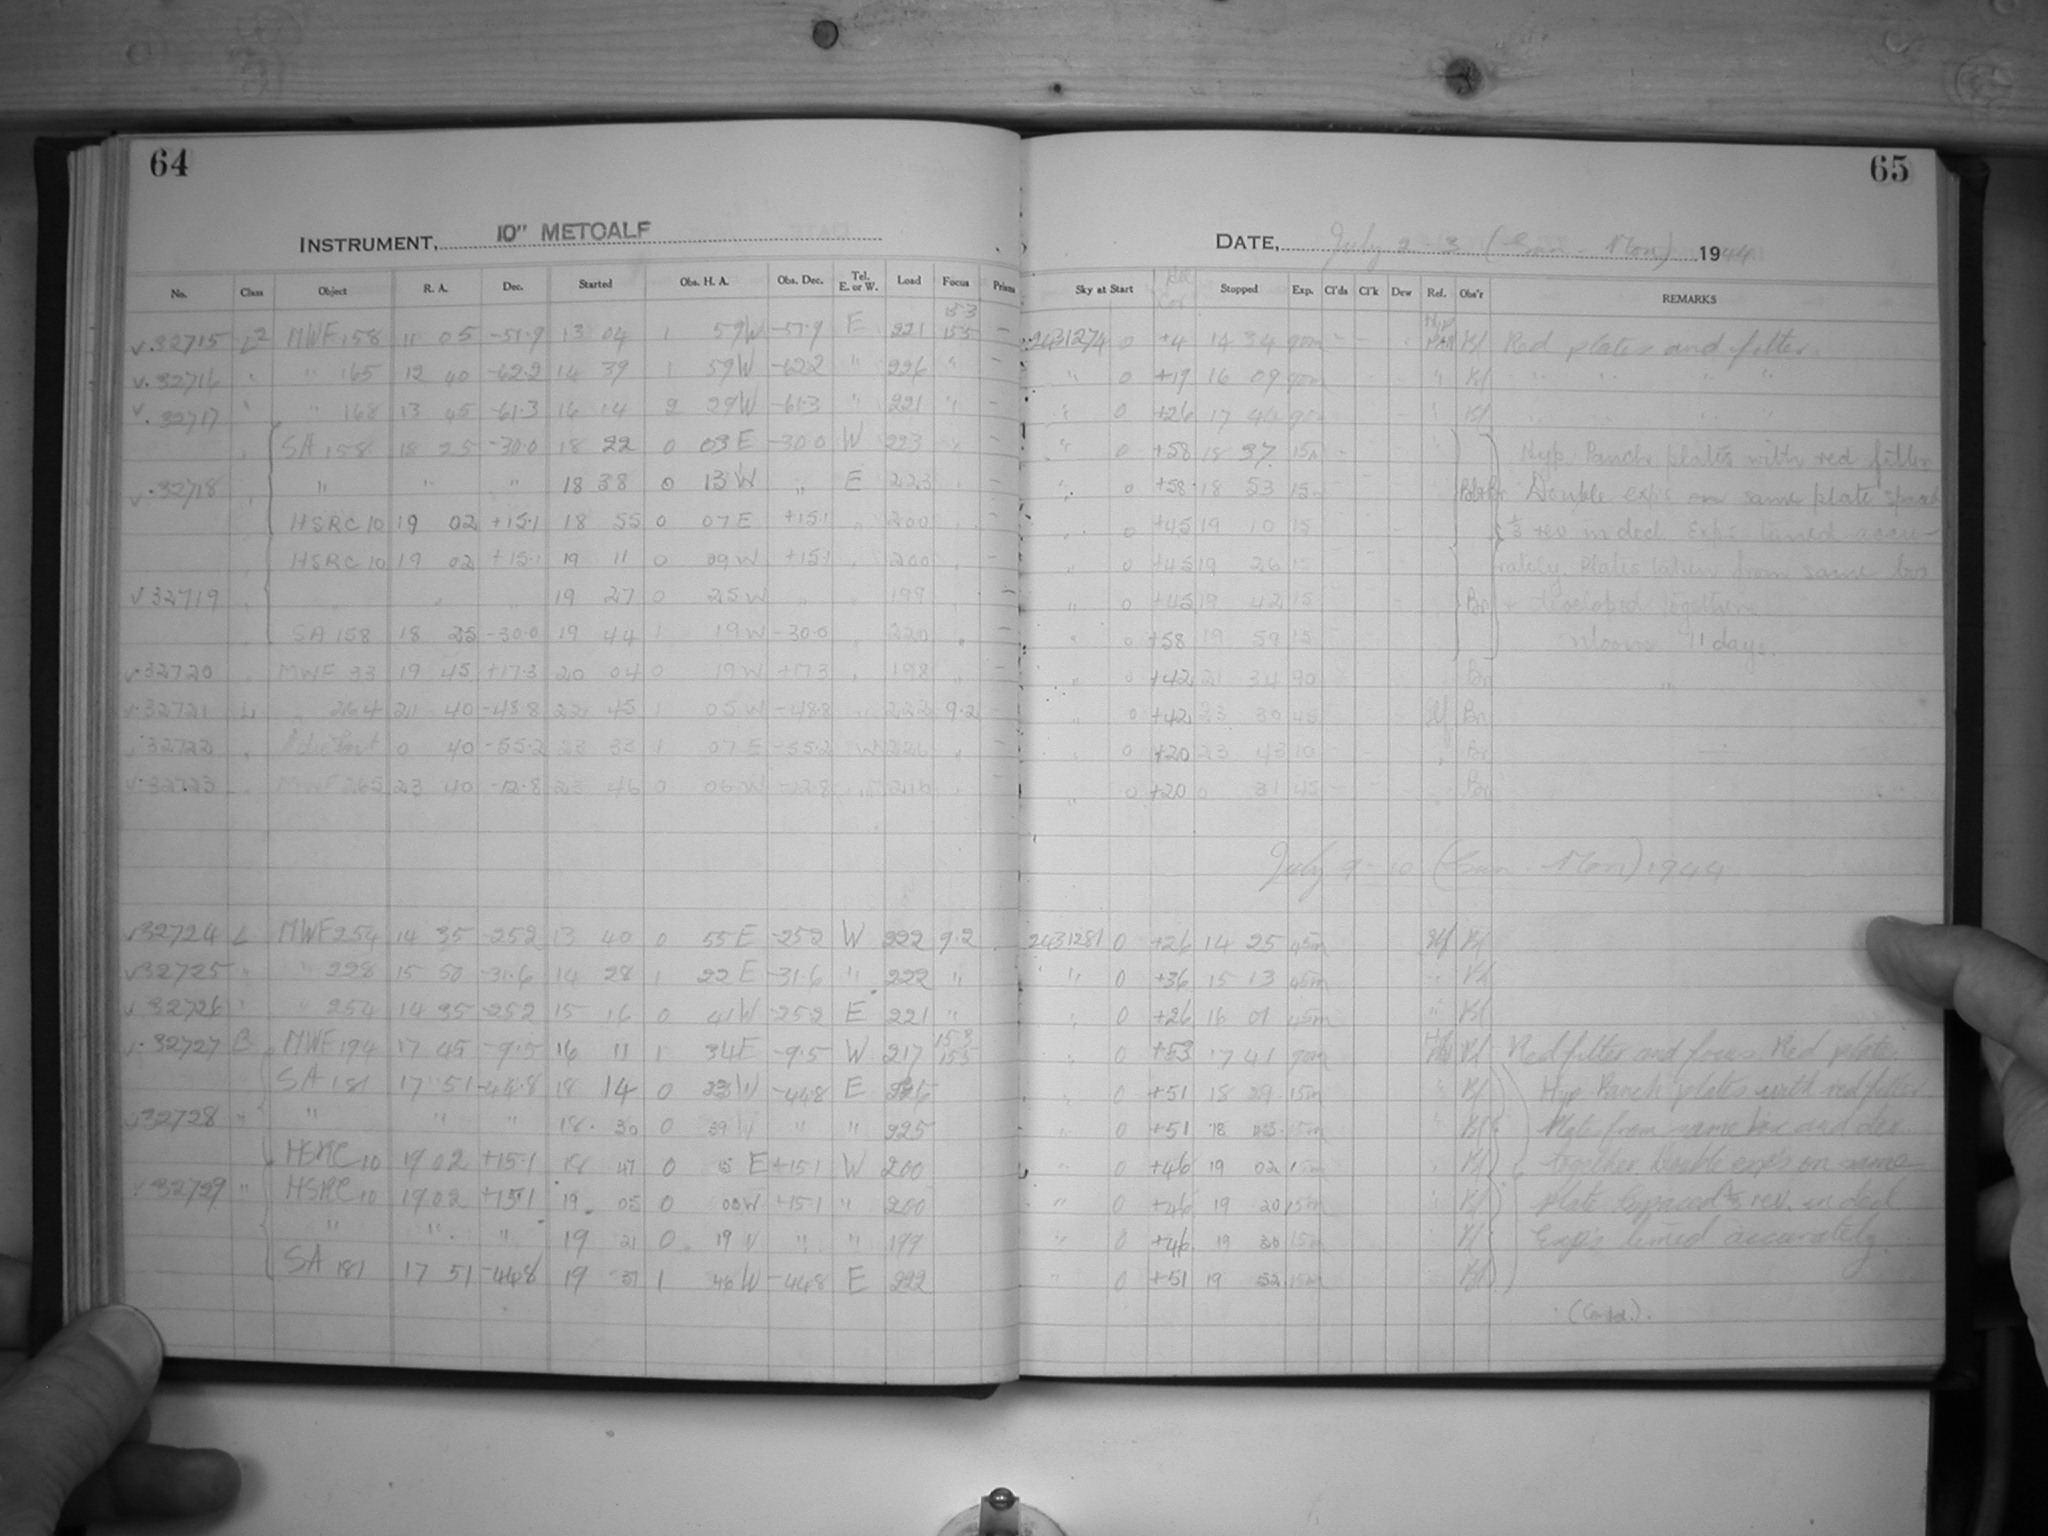 64
INSTRUMENT, 10" METCALF
No. Class Object R. A. Dec. Started Obs. H. A. Obs. Dec. Tel. E. or W. Load Focus Prisms
32715 L2 MWF 158 11 05 -57.9 13 04 1 59W -57.9 E 221 153 155 –
32716 " " 165 12 40 -62.2 14 39 1 59W -62.2 " 226 " –
32717 " " 168 13 45 -61.3 16 14 2 29W -61.3 " 221 " –
SA 158 18 25 -30.0 18 22 0 03E -30.0 W 223 –
32718 " " " 18 38 0 13W " E 223 –
HSRC 10 19 02 +15.1 18 55 0 07E +15.1 " 200
HSRC 10 19 02 +15.1 19 11 0 09W +15.1 200 –
32719 " " " 19 27 0 25W " 199 –
SA 158 18 25 -30.0 19 44 1 19W -30.0 220 " –
32720 MWF 33 19 45 +17.3 20 04 0 19W +17.3 198 –
32721 L " 264 21 40 -48.8 22 45 1 05W -48.8 222 9.2 –
32722 0 40 -55.2 23 33 1 07E -55.2 W 226 –
32723 MWF 265 23 40 -12.8 23 46 0 06W -12.8 216 –
32724 L MWF 254 14 35 -25.2 13 40 0 55E -25.2 W 222 9.2
32725 " " 228 15 50 -31.6 14 28 1 22E -31.6 " 222 "
32726 " " 254 14 35 -25.2 15 16 0 41W -25.2 E 221 "
32727 B MWF 194 17 45 -9.5 16 11 1 34E -9.5 W 217 153 155
SA 181 17 51 -44.8 18 14 0 23W -44.8 E 226
32728 " " " " 18 30 0 39W " " 225
HSRC 10 19 02 +15.1 18 47 0 15E +15.1 W 200
32729 " HSRC 10 19 02 +15.1 19 05 0 00W +15.1 " 200
" " " 19 21 0 19W " " 199
SA 181 17 51 -44.8 19 37 1 46W -44.8 E 222
65
DATE, July 2-3 (Sun - Mon) 1944
Sky at Start Stopped Exp. Cl'ds Cl'k Dew Ref. Obs'r REMARKS
2431274 0 +4 14 34 90m Bl Red plates and filter.
" 0 +19 16 09 90m " Bl " " " "
" 0 +26 17 44 90m " Bl " " " "
" 0 +58 18 37 15m Hyp. Panch. plates with red filter
" 0 +58 18 53 15m Double exp's on same plate spaced
" 0 +45 19 10 15 1/3 rev in decl. Exp's timed accu-
" 0 +45 19 26 15 rately. Plates taken from same box
" 0 +45 19 42 15 Br + developed together.
" 0 +58 19 59 15 Moon 11 days.
" 0 +42 21 34 90 Br "
" 0 +42 23 30 45 Br
" 0 +20 23 43 10 Br
" 0 +20 0 31 45 Br
July 9-10 (Sun - Mon) 1944
2431281 0 +26 14 25 45m Bl
" 0 +36 15 13 45m " Bl
" 0 +26 16 01 45m " Bl
" 0 +53 17 41 90m Bl Red filter and focus. Red plate.
" 0 +51 18 29 15m " Bl Hyp Panch plates with red filter
" 0 +51 18 15m " Bl Plate from same box and dev.
" 0 +46 19 02 15m " Bl together. Double exp's on same
" 0 +46 19 20 15m " Bl plate spaced 1/3 rev. in decl
" 0 +46 19 15m Bl Exp's timed accurately.
" 0 +51 19 52 15m Bl
(Contd.).